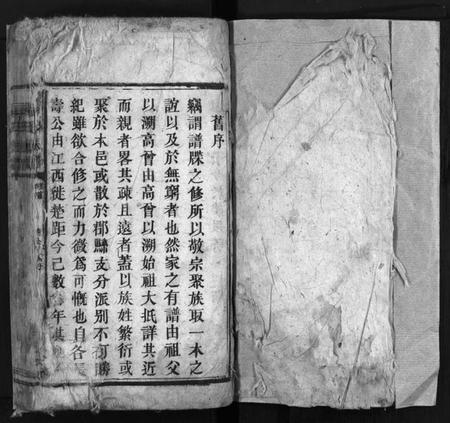 舊序
竊謂譜牒之修所以敬宗聚族取一木之
誼以及於無窮者也然家之有譜由祖父
以溯高曾由高曾以溯始祖大抵詳其近
而親者畧其疎且遠者蓋以族姓繁衍或
聚於本邑或散於郡縣支分派別不可勝
紀雖欲合修之而力微爲可慨也自各
壽公由江西徙楚距今已數年其